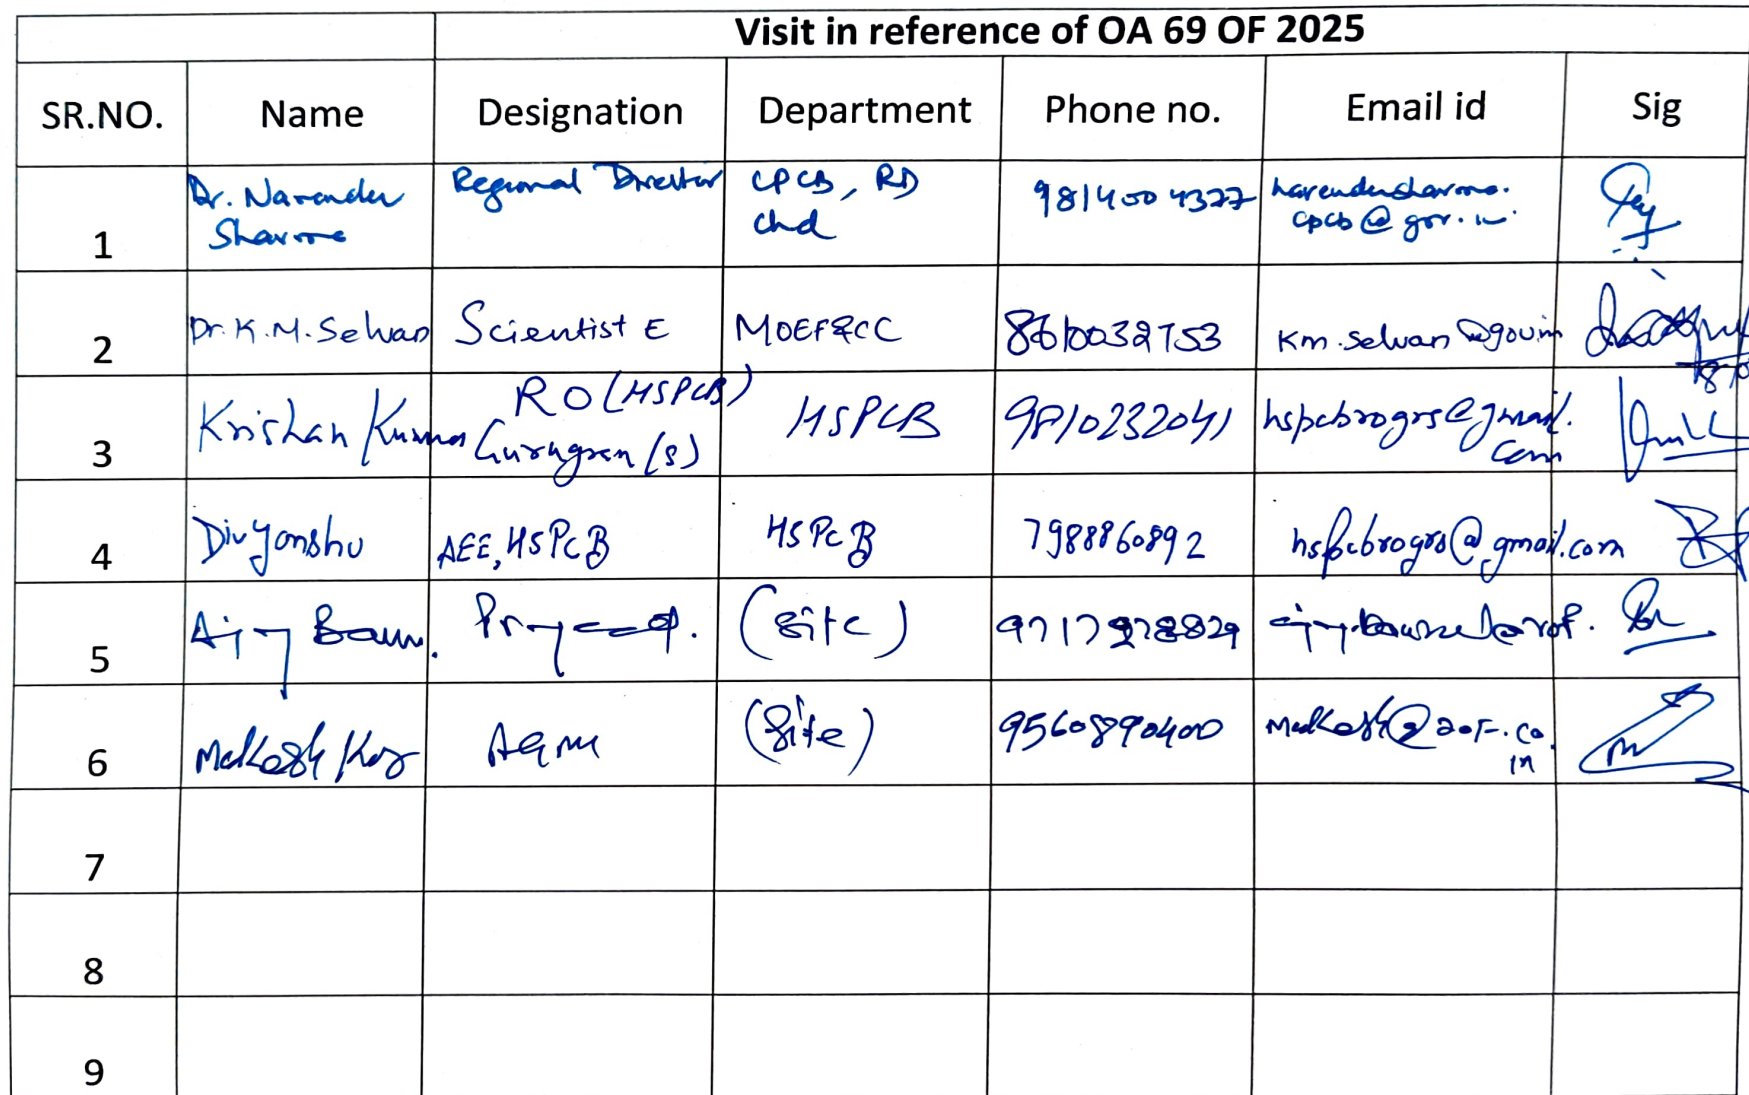 Visit in reference of OA 69 OF 2025
SR.NO. Name Designation Department Phone no. Email id Sig
1 Dr. Narender Sharma Regional Director CPCB, RD Chd 9814004377 narendersharma.cpcb@gov.in
2 Dr. K.M. Selvan Scientist E MOEF&CC 8610032753 Km.selvan@gov.in
3 Krishan Kumar RO (HSPCB) Gurugram (S) HSPCB 9810232041 hspcbrogrs@gmail.com
4 Divyanshu AEE, HSPCB HSPCB 7988860892 hspcbrogrs@gmail.com
5 (Site)
6 AGM (Site) 9560890400
7
8
9